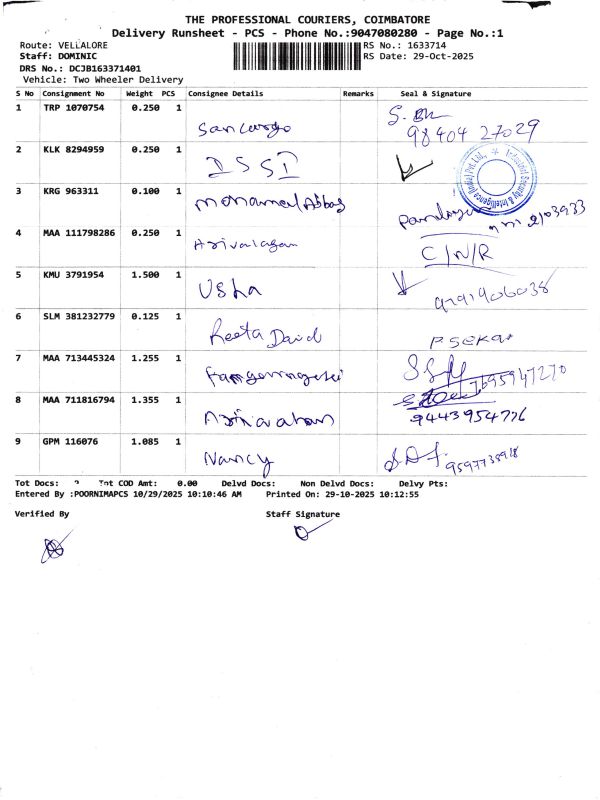 THE PROFESSIONAL COURIERS, COIMBATORE
Delivery Runsheet - PCS - Phone No.:9047080280 - Page No.:1
Route: VELLALORE RS No.: 1633714
Staff: DOMINIC RS Date: 29-Oct-2025
DRS No.: DCJB163371401
Vehicle: Two Wheeler Delivery
S No Consignment No Weight PCS Consignee Details Remarks Seal & Signature
1 TRP 1070754 0.250 1
98404 27029
2 KLK 8294959 0.250 1
DSSI
3 KRG 963311 0.100 1
Mohamed Abbas
4 MAA 111798286 0.250 1
Arivalagan C/N/R
5 KMU 3791954 1.500 1
Usha
6 SLM 381232779 0.125 1
Reeta David P Sekar
7 MAA 713445324 1.255 1
7695947270
8 MAA 711816794 1.355 1
9443954776
9 GPM 116076 1.085 1
Nancy
Tot Docs: Tot COD Amt: 0.00 Delvd Docs: Non Delvd Docs: Delvy Pts:
Entered By :POORNIMAPCS 10/29/2025 10:10:46 AM Printed On: 29-10-2025 10:12:55
Verified By Staff Signature